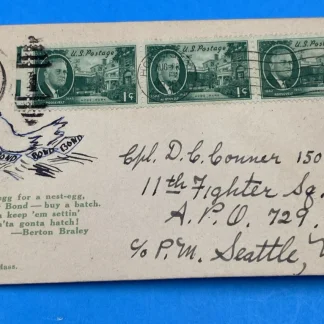 U.S. Postage U.S. Postage U.S. Postage
1¢ 1¢
BOND BOND BOND
Cpl. D. C. Conner 150
11th Fighter Sq.
A. P. O. 729.
c/o P.M. Seattle,
egg for a nest-egg,
Bond — buy a batch.
keep 'em settin'
'ta gonta hatch!
—Berton Braley
Mass.